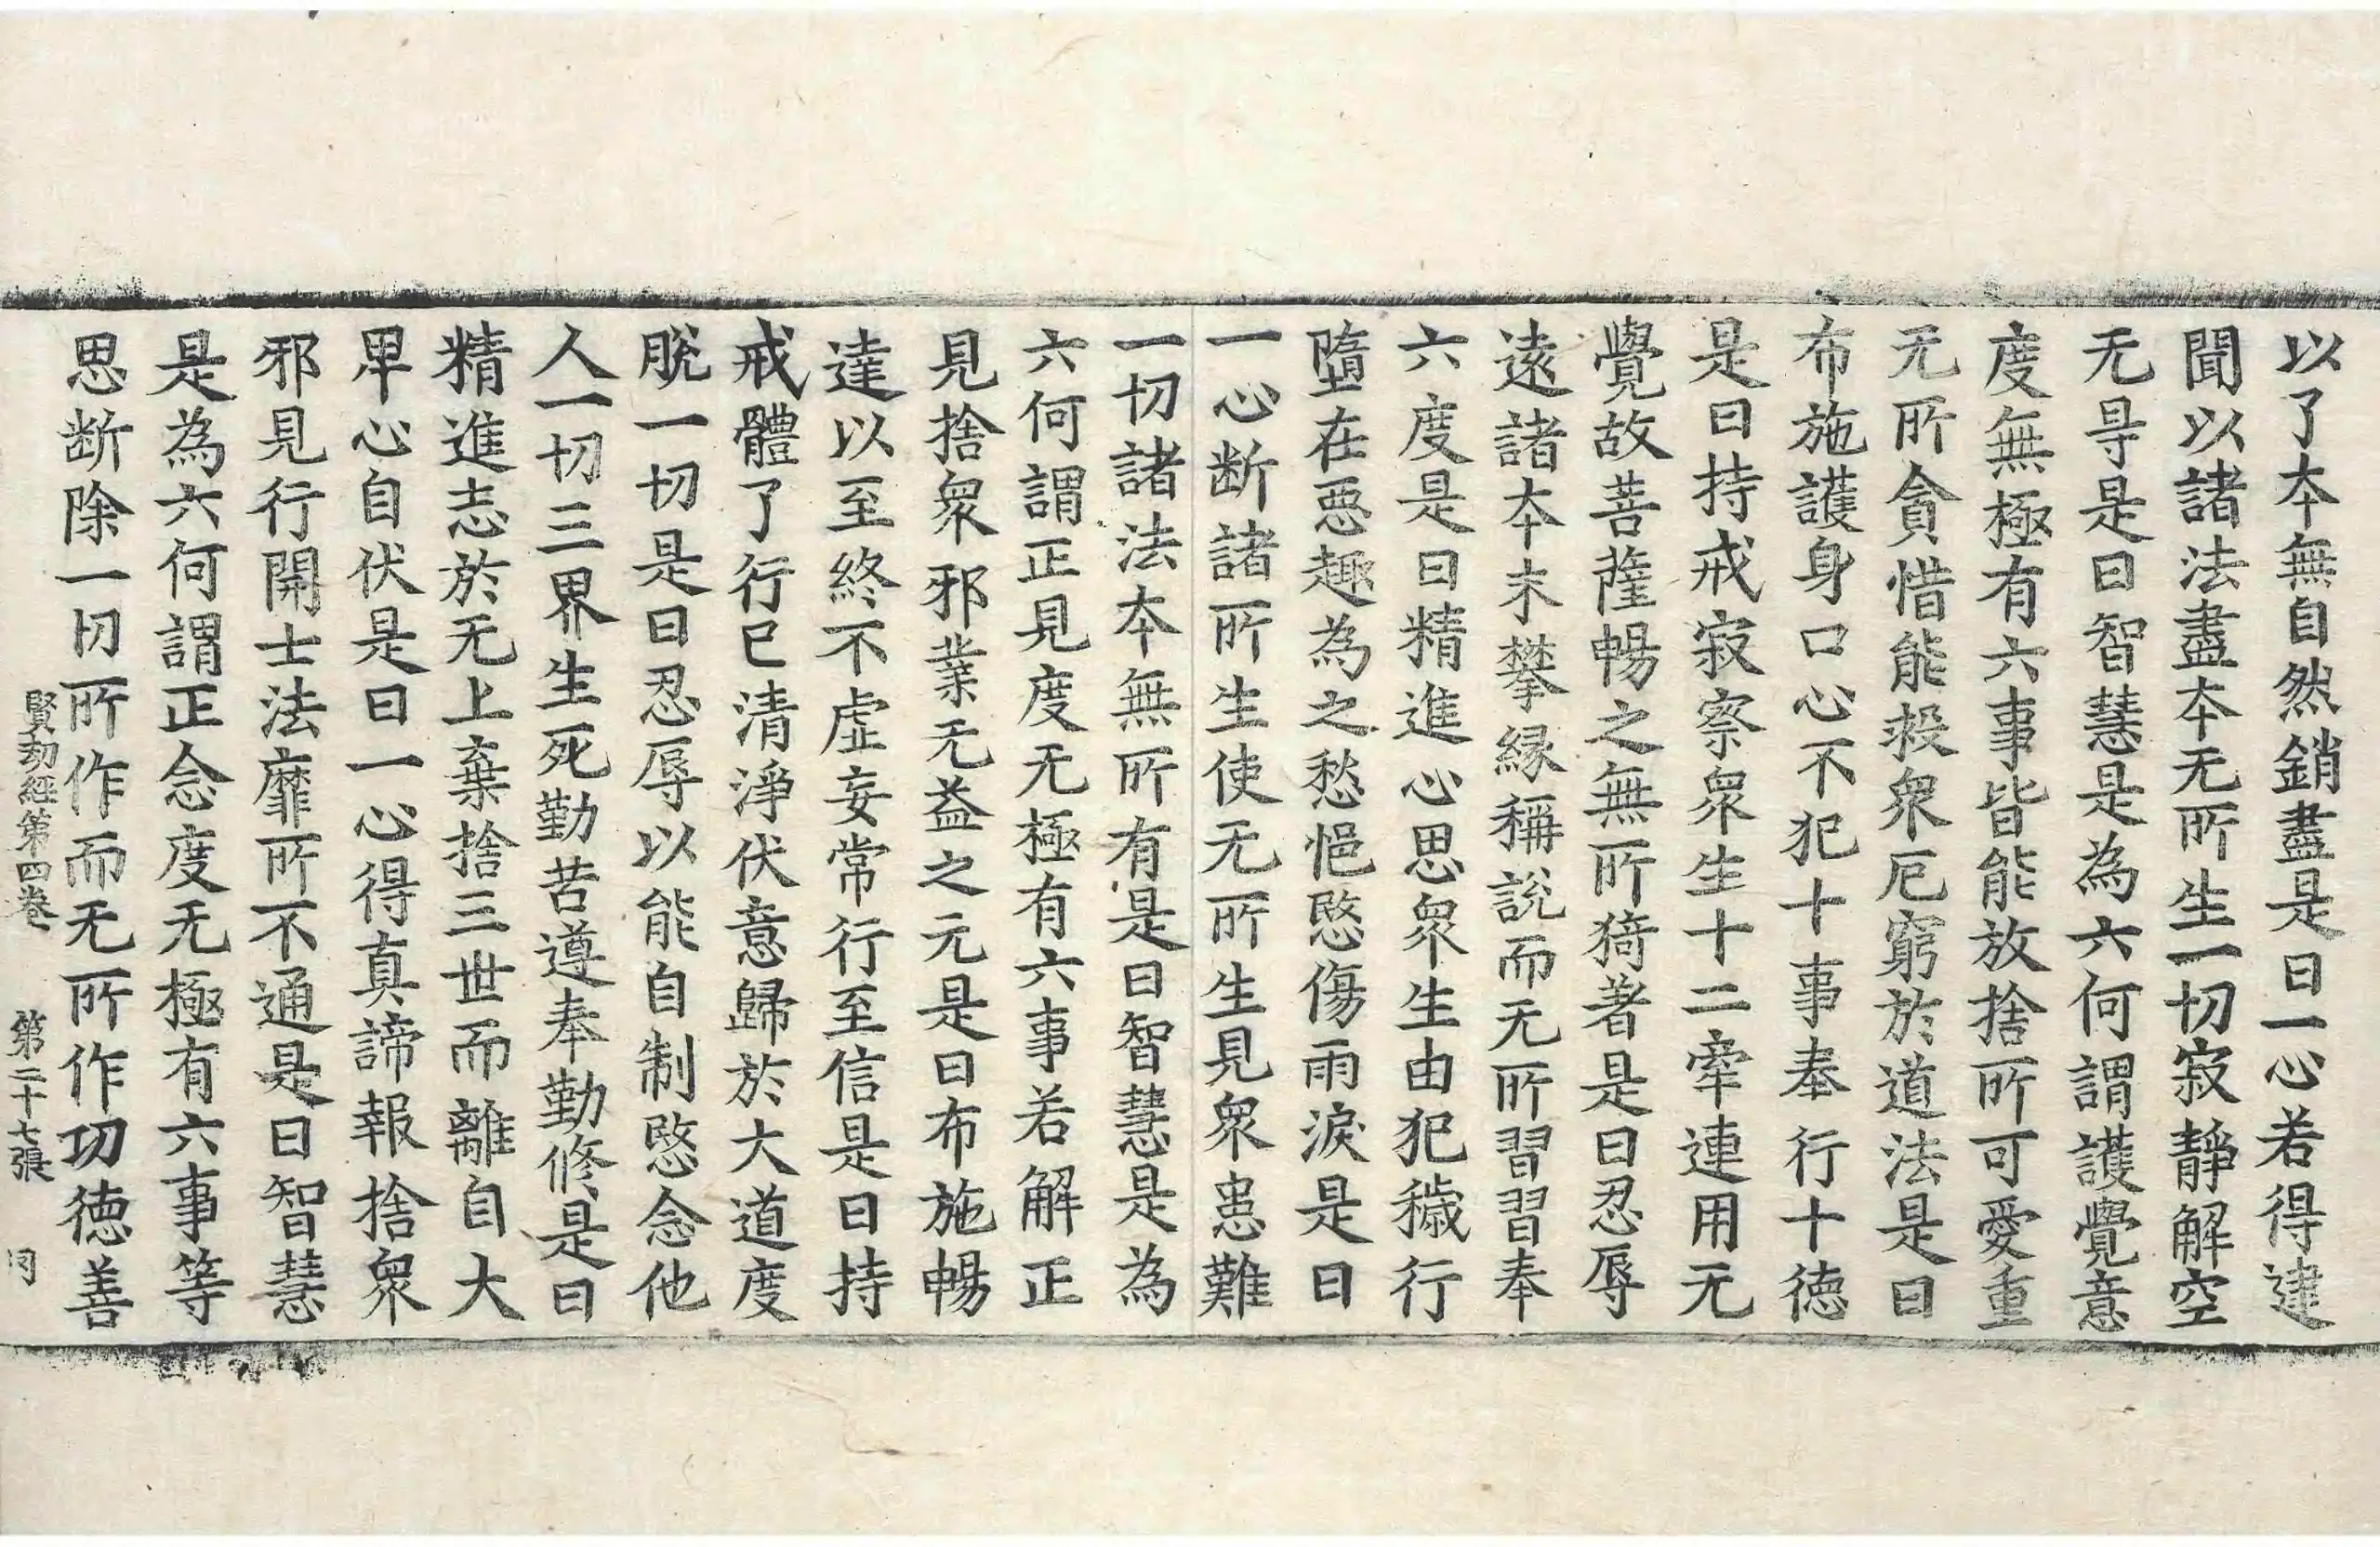 以了本無自然銷盡是曰一心若得建
聞以諸法盡本无所生一切寂靜解空
无㝵是曰智慧是為六何謂護覺意
度無極有六事皆能放捨所可愛重
无所貪惜能救衆厄窮於道法是曰
布施護身口心不犯十事奉行十德
是曰持戒寂察衆生十二牽連用无
覺故菩薩暢之無所猗著是曰忍辱
遠諸本末攀縁稱說而无所習習奉
六度是曰精進心思衆生由犯穢行
墮在惡趣為之愁悒愍傷雨淚是曰
一心断諸所生使无所生見衆患難
一切諸法本無所有是曰智慧是為
六何謂正見度无極有六事若解正
見捨衆邪業无益之元是曰布施暢
達以至終不虛妄常行至信是曰持
戒體了行已清淨伏意歸於大道度
脫一切是曰忍辱以能自制愍念他
人一切三界生死勤苦遵奉勤修是曰
精進志於无上棄捨三世而離自大
卑心自伏是曰一心得真諦報捨衆
邪見行開士法靡所不通是曰智慧
是為六何謂正念度无極有六事等
思断除一切所作而无所作功德善
賢劫經第四卷　第二十七張　同